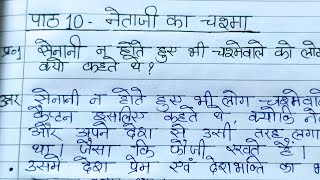 पाठ 10- नेताजी का चश्मा
प्रश्न सेनानी न होते हुए भी चश्मेवाले को लोग
क्यों कहते थे?
उत्तर सेनानी न होते हुए भी लोग चश्मेवाले
कैप्टन इसलिए कहते थे, क्योंकि
और अपने देश से उसी तरह लगा
था। जैसा कि फौजी रखते हैं।
उसमें देश प्रेम एवं देशभक्ति का